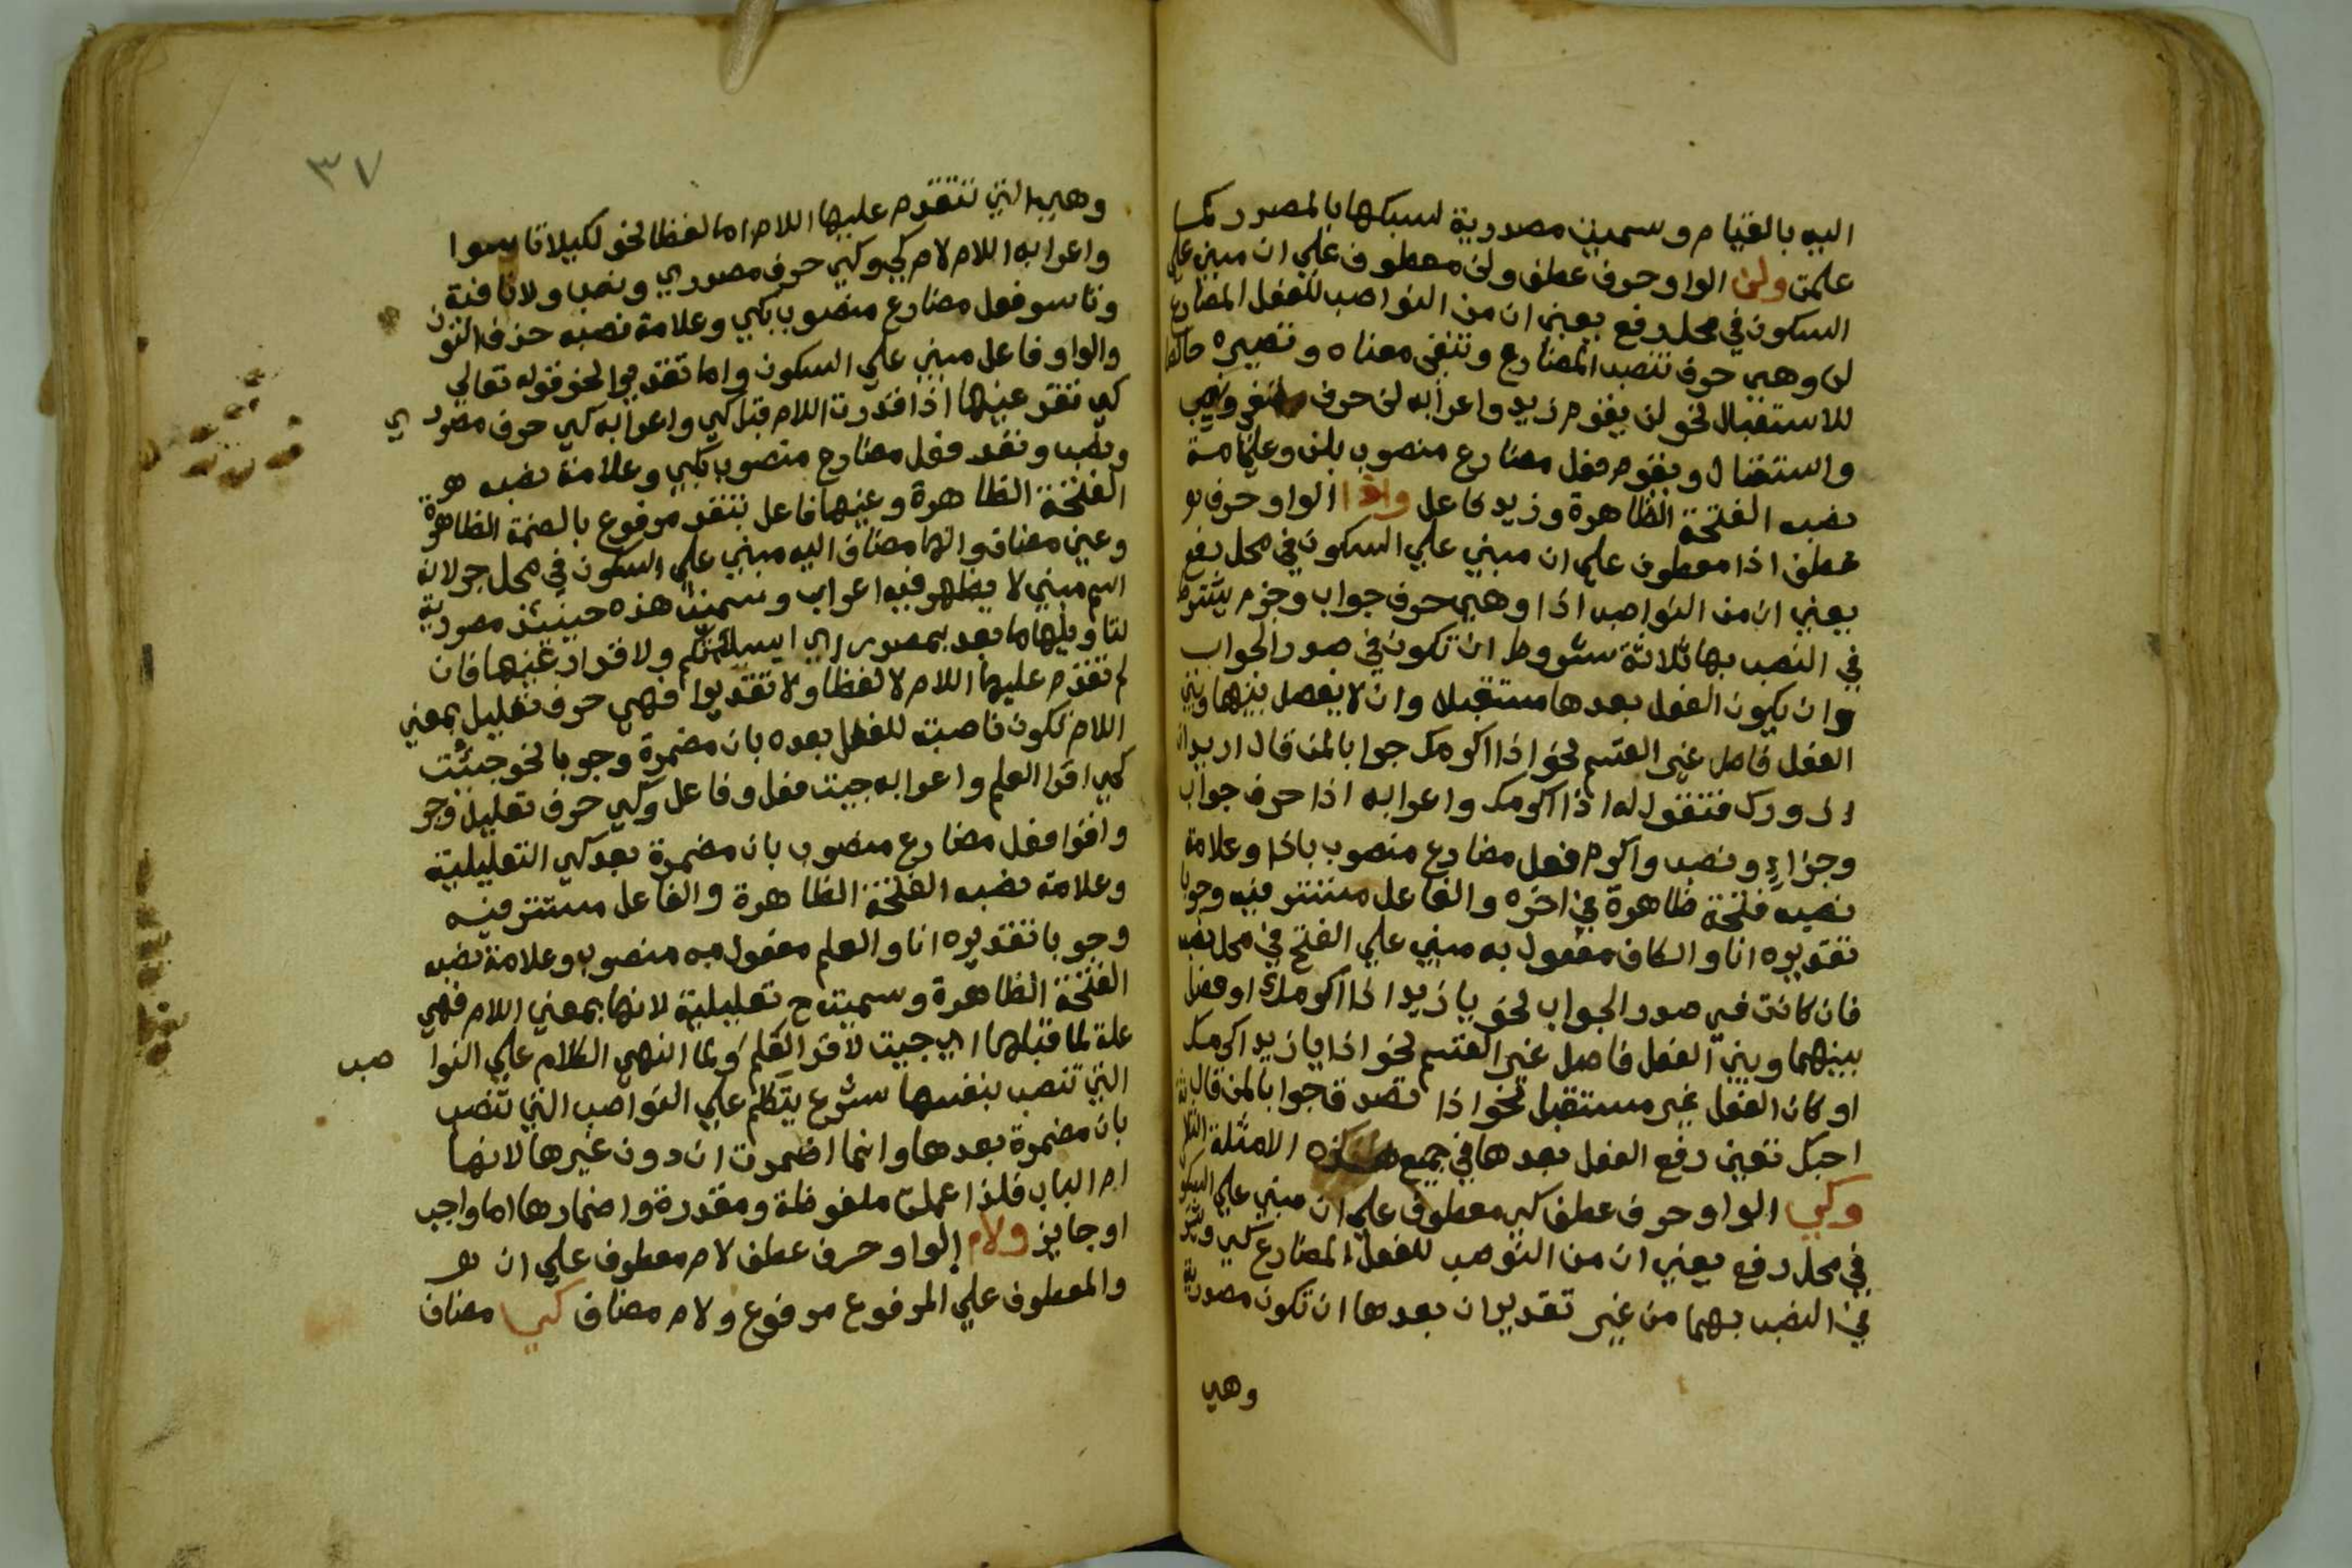 اليه بالقيام وسميت مصدرية لسبكها بالمصدر كما
علمت ولن الواو حرف عطف ولن معطوف علي ان مبني علي
السكون في محل رفع يعني ان من النواصب للفعل المضارع
لن وهي حرف تنصب المضارع وتنفي معناه وتصيره خالصا
للاستقبال نحو لن يقوم زيد واعرابه لن حرف نفي ونصب
واستقبال ويقوم فعل مضارع منصوب بلن وعلامة
نصبه الفتحة الظاهرة وزيد فاعل واذا الواو حرف
عطف اذا معطوف علي ان مبني علي السكون في محل رفع
يعني ان من النواصب اذا وهي حرف جواب وجزم يشترط
في النصب بها ثلاثة شروط ان تكون في صدر الجواب
وان يكون الفعل بعدها مستقبلا وان لا يفصل بينها وبين
الفعل فاصل غير القسم نحو اذا اكرمك جوابا لمن قال اريد ان
ازورك فتقول له اذا اكرمك واعرابه اذا حرف جواب
وجزاء ونصب واكرم فعل مضارع منصوب باذا وعلامة
نصبه فتحة ظاهرة في اخره والفاعل مستتر فيه وجوبا
تقديره انا والكاف مفعول به مبني علي الفتح في محل نصب
فان كانت في صدر الجواب نحو يا زيد اذا اكرمك او فصل
بينهما وبين الفعل فاصل غير القسم نحو اذا يا زيد اكرمك
او كان الفعل غير مستقبل نحو اذا تصدق جوابا لمن قال
احبك تعين رفع الفعل بعدها في جميع هذه الامثلة
وكي الواو حرف عطف كي معطوف علي ان مبني علي السكو
في محل رفع يعني ان من النوصب للفعل المضارع كي
في النصب بهما من غير تقدير ان بعدها ان تكون مصدرية
وهي
٣٧
وهي التي تتقدم عليها اللام اما لفظا نحو لكيلا تاسوا
واعرابه اللام لام كي وكي حرف مصدري ونصب ولا نافية
وتاسو فعل مضارع منصوب بكي وعلامة نصبه حذف النون
والواو فاعل مبني علي السكون واما تقديرا نحو قوله تعالي
كي تقر عينها اذا قدرت اللام قبل كي واعرابه كي حرف مصدري
ونصب وتقر فعل مضارع منصوب بكي وعلامة نصبه
الفتحة الظاهرة وعينها فاعل بتقر مرفوع بالضمة الظاهرة
وعين مضاف والها مضاف اليه مبني علي السكون في محل جر لانه
اسم مبني لا يظهر فيه اعراب وسميت هذه حينئذ مصدرية
لتاويلها ما بعد بمصدر اي ولا قرار عينها فان
لم تقدم عليها اللام لا لفظا ولا تقديرا فهي حرف تعليل بمعني
اللام تكون ناصبة للفعل بعده بان مضمرة وجوبا نحو جيئت
كي اقرا العلم واعرابه جيت فعل وفاعل وكي حرف تعليل وجر
واقرا فعل مضارع منصوب بان مضمرة بعد كي التعليلية
وعلامة نصبه الفتحة الظاهرة والفاعل مستتر فيه
وجوبا تقديره انا والعلم مفعول به منصوب وعلامة نصبه
الفتحة الظاهرة وسميت ح تعليلية لانها بمعني اللام فهي
علة لما قبلها اي جيت لاقرا العلم ولما انهي الكلام علي النوا صب
التي تنصب بنفسها شرع يتكلم علي النواصب التي تنصب
بان مضمرة بعدها وانما اضمرت ان دون غيرها لانها
ام الباب فلذا عملت ملفوظة ومقدرة واضمارها اما واجب
او جايز ولام الواو حرف عطف لام معطوف علي ان
والمعطوف علي المرفوع مرفوع ولام مضاف كي مضاف